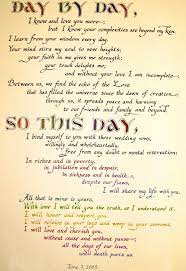 DAY BY DAY,
I know and love you more—
but I know your complexities are beyond my ken.
I learn from your wisdom every day.
Your mind stirs my soul to new heights;
your faith in me gives me strength;
your touch delights me;
and without your love I am incomplete—
Between us, we find the echo of the Love
that has filled the universe since the dawn of creation
through us, it spreads peace and harmony
to our friends and family and beyond.
SO THIS DAY,
I bind myself to you with these wedding vows,
willingly and wholeheartedly,
free from any doubt or mental reservation:
In riches and in poverty,
in jubilation and in despair
in sickness and in health
despite our flaws,
I will share my life with you.
All that is mine is yours.
With love I will tell you the truth, as I understand it.
I will honor and respect you.
I will rejoice in your love and weep in your sorrows.
I will love and cherish you,
without cease and without pause—
all the days of our lives,
until death parts us.
June 7, 2003